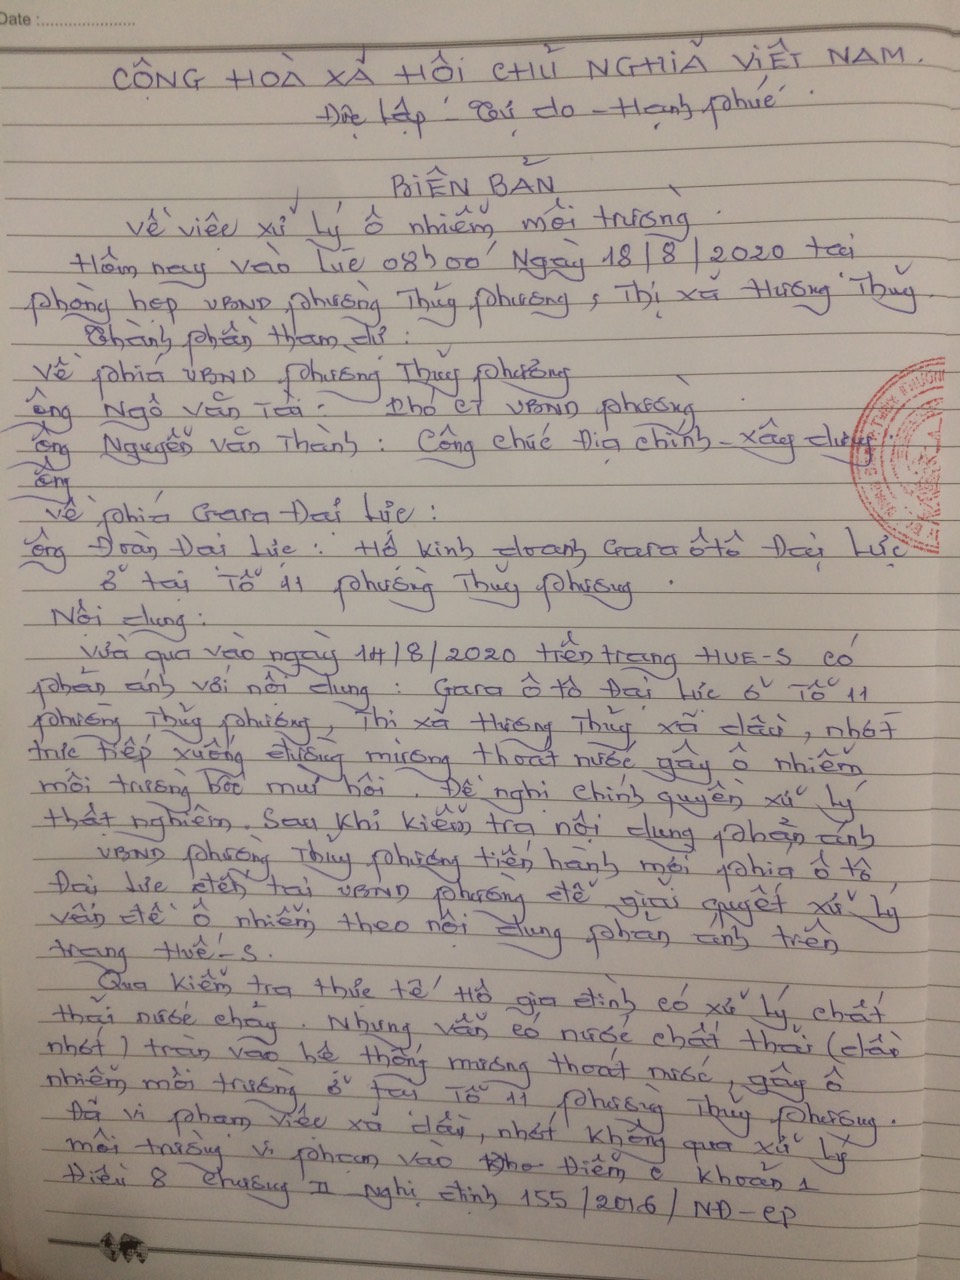 Date :
CỘNG HOÀ XÃ HỘI CHỦ NGHĨA VIỆT NAM.
Độc lập - Tự do - Hạnh phúc
BIÊN BẢN
Về việc xử lý ô nhiễm môi trường.
Hôm nay vào lúc 08h00' Ngày 18/8/2020 tại
phòng họp UBND phường Thủy phương, Thị xã Hương Thủy.
Thành phần tham dự:
Về phía UBND phường Thủy phương
Ông Ngô Văn Tài: Phó CT UBND phường
Ông Nguyễn Văn Thành: Công chức Địa chính - xây dựng.
Ông
Về phía Gara Đại Lực:
Ông Đoàn Đại Lực: Hộ kinh doanh Gara ôtô Đại Lực
ở tại Tổ 11 phường Thủy phương.
Nội dung:
Vừa qua vào ngày 14/8/2020 trên trang HUE-S có
phản ánh với nội dung: Gara ô tô Đại Lực ở Tổ 11
phường Thủy phương, Thị xã Hương Thủy xả dầu, nhớt
trực tiếp xuống đường mương thoát nước gây ô nhiễm
môi trường bốc mùi hôi. Đề nghị chính quyền xử lý
thật nghiêm. Sau khi kiểm tra nội dung phản ánh
UBND phường Thủy phương tiến hành mời phía ô tô
Đại Lực đến tại UBND phường để giải quyết xử lý
vấn đề ô nhiễm theo nội dung phản ánh trên
trang Huế-S.
Qua kiểm tra thực tế Hộ gia đình có xử lý chất
thải nước chảy. Nhưng vẫn có nước chất thải (dầu
nhớt) tràn vào hệ thống mương thoát nước, gây ô
nhiễm môi trường ở tại Tổ 11 phường Thủy phương.
Đã vi phạm việc xả dầu, nhớt không qua xử lý
môi trường vi phạm vào Điểm c khoản 1
Điều 8 chương II Nghị định 155/2016/NĐ-CP